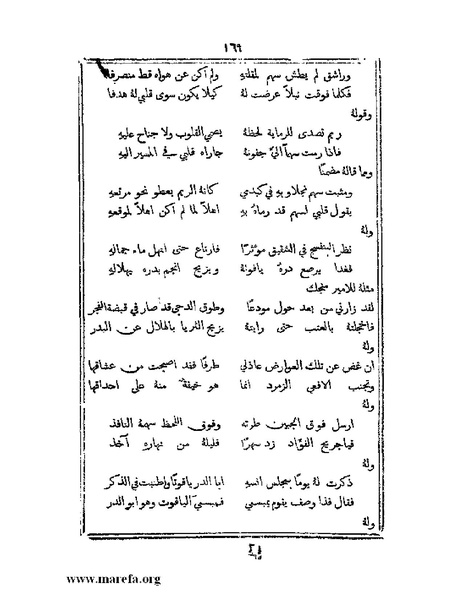 ١٦٦
وراشق لم يطش سهم لمقلته ولم اكن عن هواه قط منصرفا
فكلما فوقت نبلاً عرضت لهُ كيلا يكون سوى قلبي لهُ هدفا
وقولهُ
ريم تصدى للرماية لحظهُ يصمي القلوب ولا جناح عليهِ
فاذا رمت سهماً اليّ جفونهُ جاراه قلبي في المسير اليهِ
ومما قالهُ مضمنًا
ومثبت سهم نجلاويهِ في كبدي كانهُ الريم يعطو نحو مرتعهِ
يقول قلبي لسهم قد رماهُ بهِ اهلاً لما لم اكن اهلاً لموقعهِ
ولهُ
نظر البنفسج في الشقيق مؤثرًا فارتاع حتى انهل ماء جمالهِ
فغدا يرصع درهُ ياقوتهُ ويزيح انجم بدره بهلالهِ
مثلهُ للامير منجك
لقد زارني من بعد حول مودعًا وطوق الدجى قد صار في قبضة الفجر
فاخجلتهُ بالعتب حتى رايتهُ يزيح الثريا بالهلال عن البدر
ولهُ
ان غض عن تلك العوارض عاذلي طرفًا فقد اصبحت من عشاقها
وتجنب الافعى الزمرد انما هو خيفةً منهُ على احداقها
ولهُ
ارسل فوق الجبين طرته وفوق اللحظ سهمهُ النافذ
فياجريح الفؤاد زد سهرًا فليلهُ من نهارهِ آخذ
ولهُ
ذكرت لهُ يومًا بمجلس انسهِ ابا الدر ياقوتًا واطنبت في الذكر
فقال فذا وصف يقوم بمبسمي فمبسمي الياقوت وهو ابو الدر
ولهُ
www.marefa.org